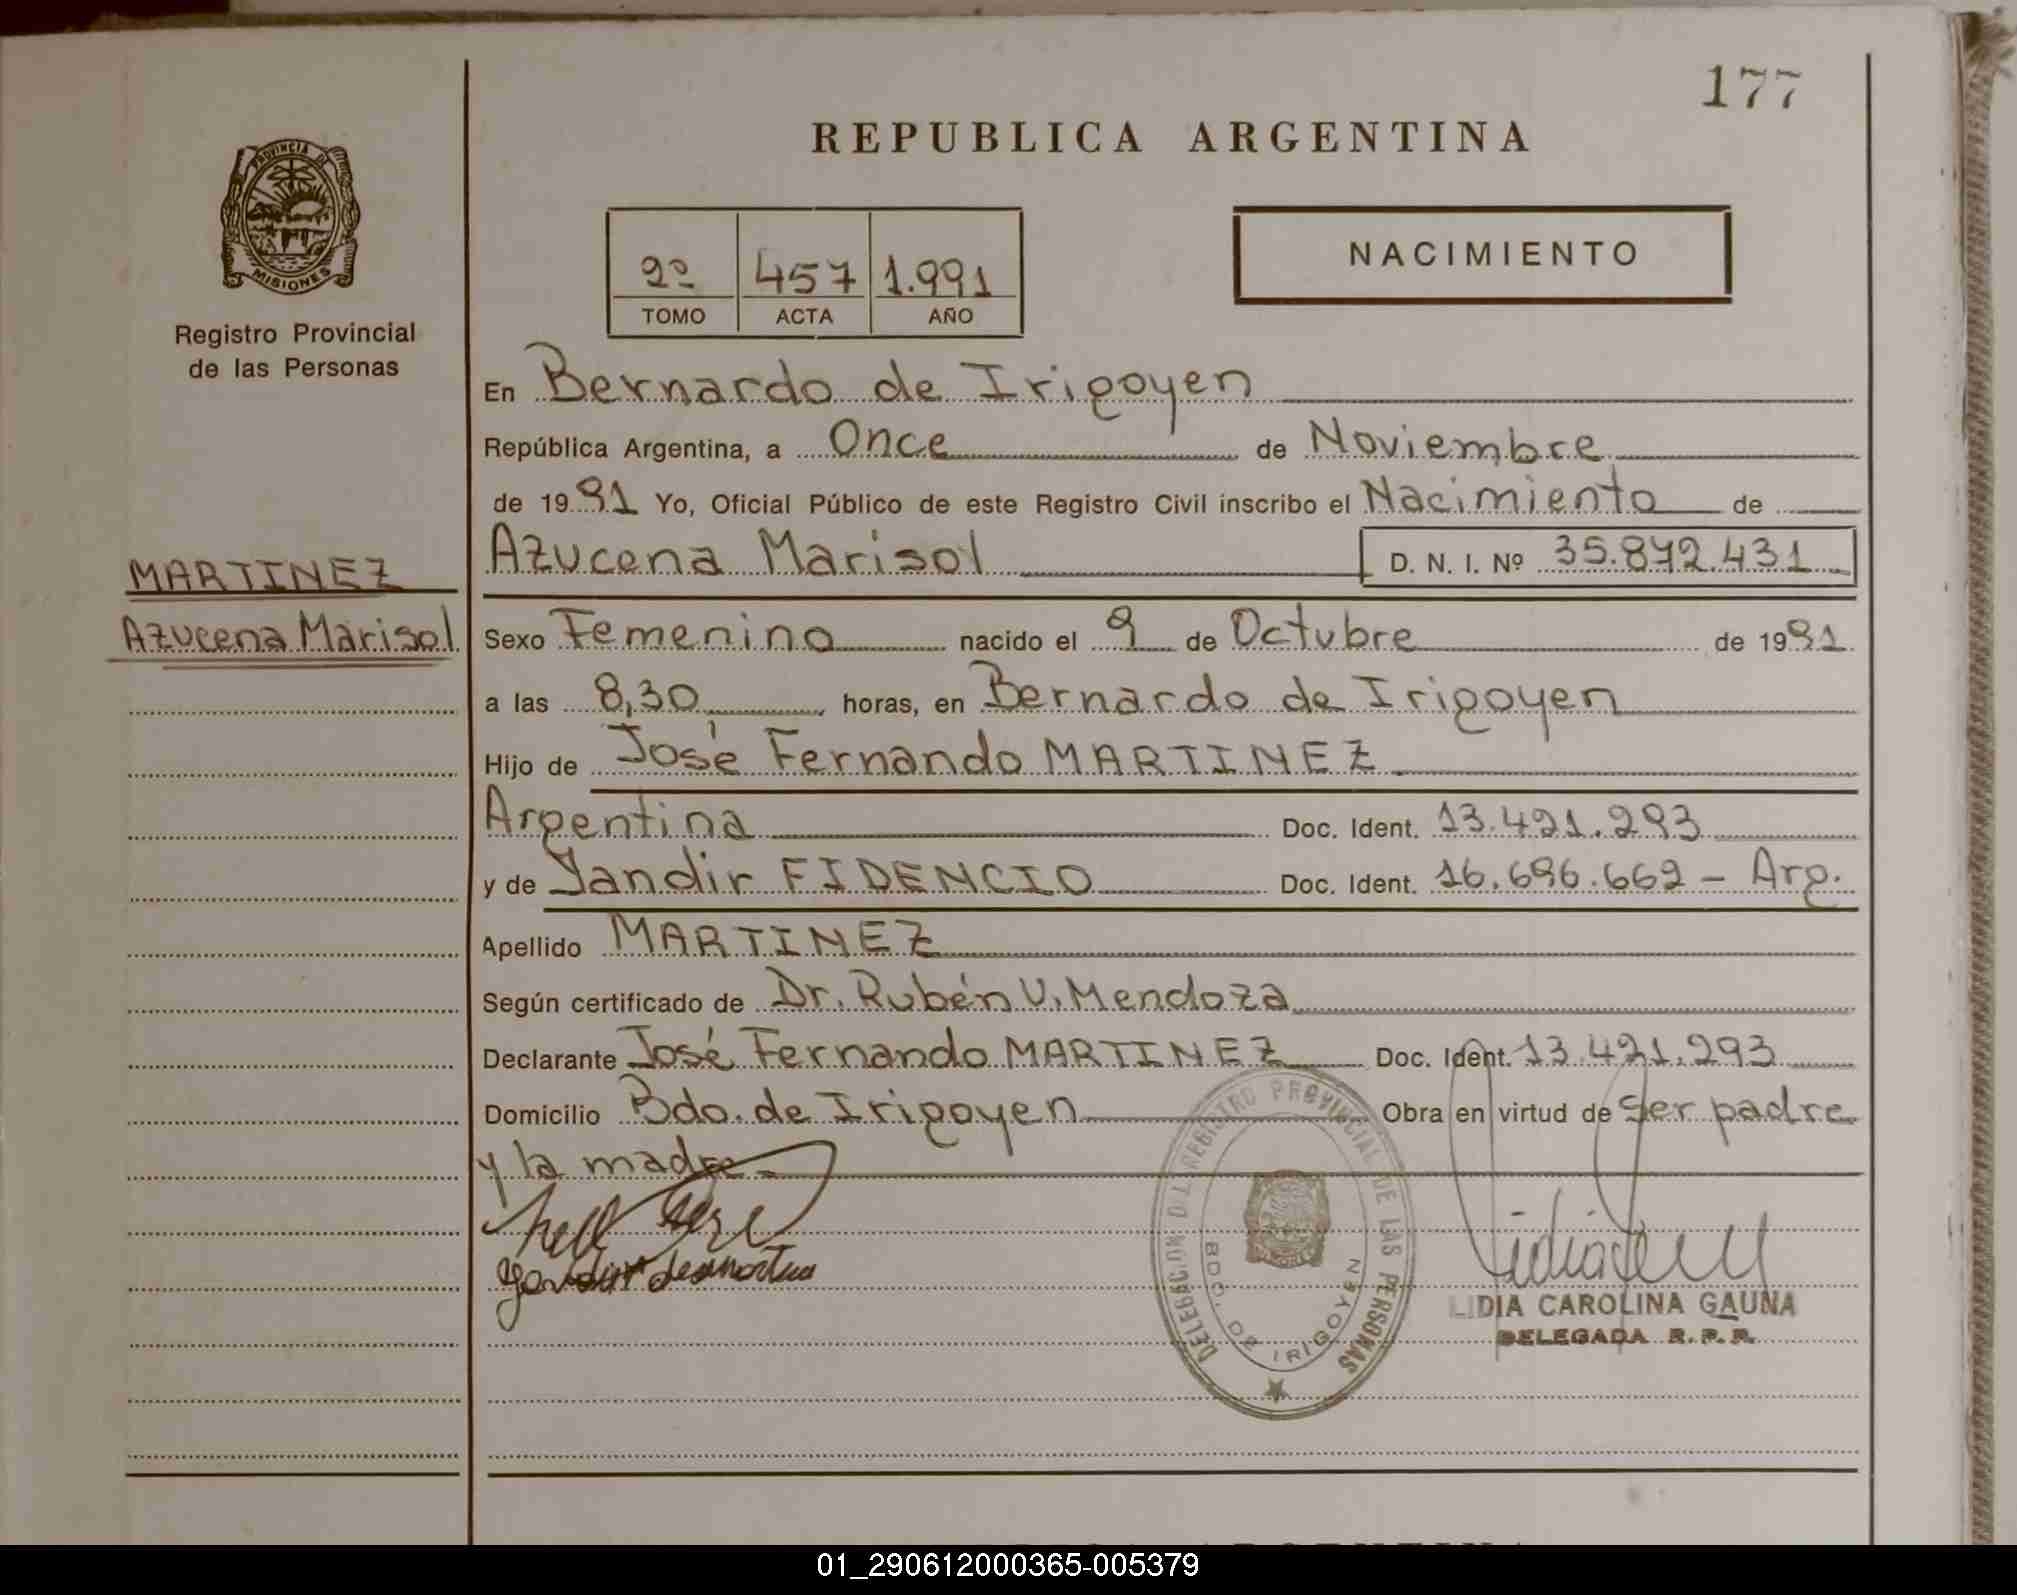 177
REPUBLICA ARGENTINA
PROVINCIA DE
MISIONES
Registro Provincial
de las Personas
2º 457 1.991
TOMO ACTA AÑO
NACIMIENTO
En Bernardo de Irigoyen
República Argentina, a Once de Noviembre
de 1991 Yo, Oficial Público de este Registro Civil inscribo el Nacimiento de
MARTINEZ
Azucena Marisol
Azucena Marisol D. N. I. Nº 35.872.431
Sexo Femenino nacido el 9 de Octubre de 1991
a las 8,30 horas, en Bernardo de Irigoyen
Hijo de José Fernando MARTINEZ
Argentina Doc. Ident. 13.421.293
y de Jandir FIDENCIO Doc. Ident. 16.696.662 - Arg.
Apellido MARTINEZ
Según certificado de Dr. Rubén V. Mendoza
Declarante José Fernando MARTINEZ Doc. Ident. 13.421.293
Domicilio Bdo. de Irigoyen Obra en virtud de ser padre
y la madre.-
DELEGACION DEL REGISTRO PROVINCIAL DE LAS PERSONAS
BDO. DE IRIGOYEN
LIDIA CAROLINA GAUNA
DELEGADA R.P.P.
01_290612000365-005379